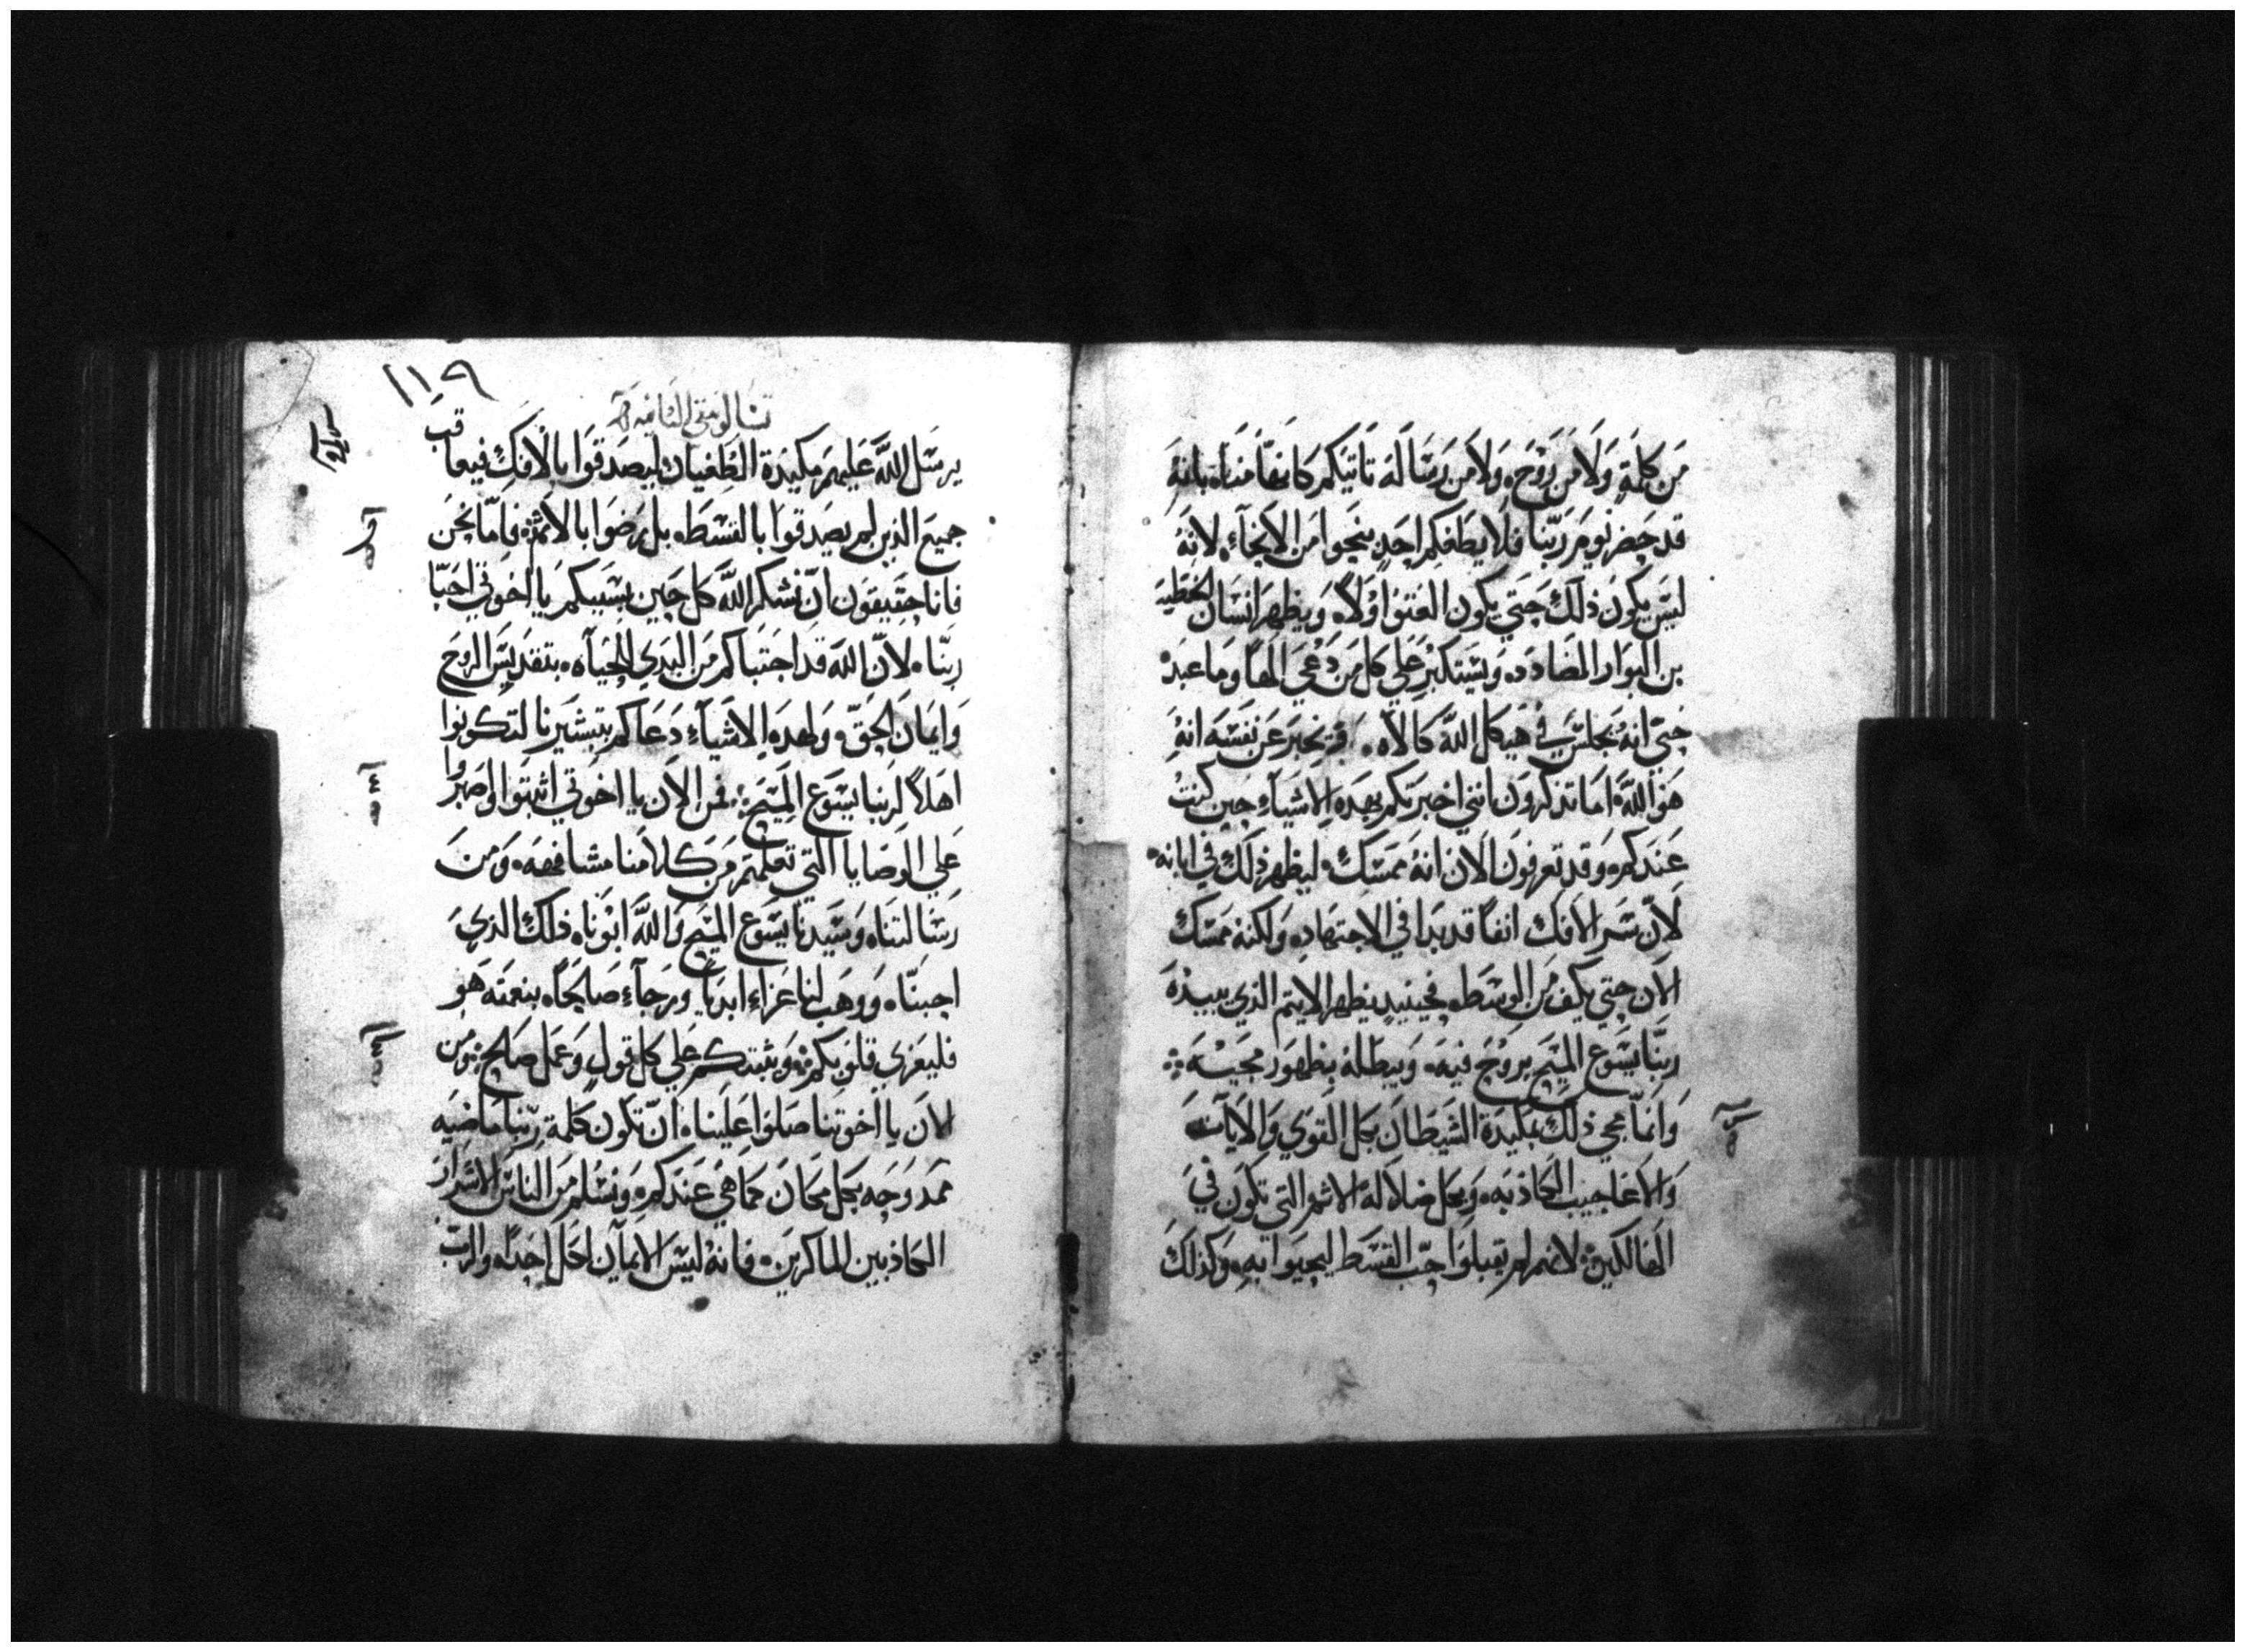 من كلمة ولا من روح ولا من رسالة تاتيكم كانها منا بانه
قد حضر يوم ربنا فلا يطغكم احد بنحوا من الانحاء لانه
ليس يكون ذلك حتي يكون العتوا اولاً ويظهر انسان الخطيه
بن البوار المضادد ويستكبر علي كل من دعي الها وما عبد
حتي انه يجلس في هيكل الله كالاه ويخبر عن نفسه انه
هو الله اما تذكرون انني اخبرتكم بهذه الاشياء حين كنت
عندكم وقد تعرفون الان انه ممسك ليظهر ذلك في ابانه
لان سر الافك انفاً قد بدا في الاجتهاد ولكنه ممسك
الان حتي يكف من الوسطه فحينيد يظهر الايتم الذي يبيده
ربنا يسوع المسيح بروح فيه ويبطله بظهور مجيه
وانما مجي ذلك بمكيدة الشيطان بكل القوي والايات
والاعاجيب الكاذبه وبكل ضلالة الاثم التي تكون في
الهالكين لانهم لم يقبلوا حب القسط ليحيوا به وكذلك
١١٩
تسالونيقي الثانيه
يرسل الله عليهم مكيدة الطغيان ليصدقوا بالافك فيعاقب
جميع الذين لم يصدقوا بالقسطه بل رضوا بالاثم فاما نحن
فانا حقيقون ان نشكر الله كل حين بسببكم يا اخوتي احبا
ربنا لان الله قد اجتباكم من البدي للحياه بتقديس الروح
وايمان الحق ولهده الاشياء دعاكم بتبشيرنا لتكونوا
اهلاً لربنا يسوع المسيح فمن الان يا اخوتي اثبتوا واصبروا
علي الوصايا التي تعلمتم من كلامنا مشافهه ومن
رسالتنا وسيدنا يسوع المسيح والله ابونا ذلك الذي
احبنا ووهب لنا عزاء ابدياً ورجاء صالحاً بنعمته هو
فليعزي قلوبكم ويثبتكم علي كل قول وعمل صالح ومن
الان يا اخوتنا صلوا علينا ان تكون كلمة ربنا ماضيه
ممدوحه بكل مكان كما هي عندكم ونسلم من الناس الاشرار
الكاذبين الماكرين فانه ليس الايمان لكل احداً والرب